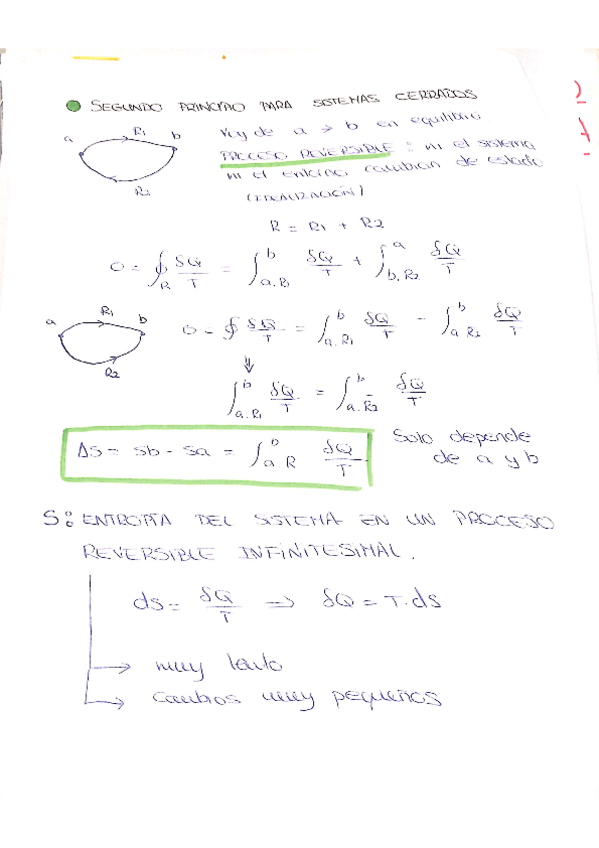 SEGUNDO PRINCIPIO PARA SISTEMAS CERRADOS
a R1 b
R2
Voy de a → b en equilibrio
PROCESO REVERSIBLE : ni el sistema
ni el entorno cambian de estado
(IDEALIZACIÓN)
R = R1 + R2
0 = ∮R δQ/T = ∫a,R1^b δQ/T + ∫b,R2^a δQ/T
a R1 b
R2
0 = ∮ δQ/T = ∫a,R1^b δQ/T - ∫a,R2^b δQ/T
⇓
∫a,R1^b δQ/T = ∫a,R2^b δQ/T
Δs = sb - sa = ∫a R^b δQ/T
Solo depende
de a y b
S: ENTROPÍA DEL SISTEMA EN UN PROCESO
REVERSIBLE INFINITESIMAL.
ds = δQ/T ⇒ δQ = T.ds
→ muy lento
→ cambios muy pequeños